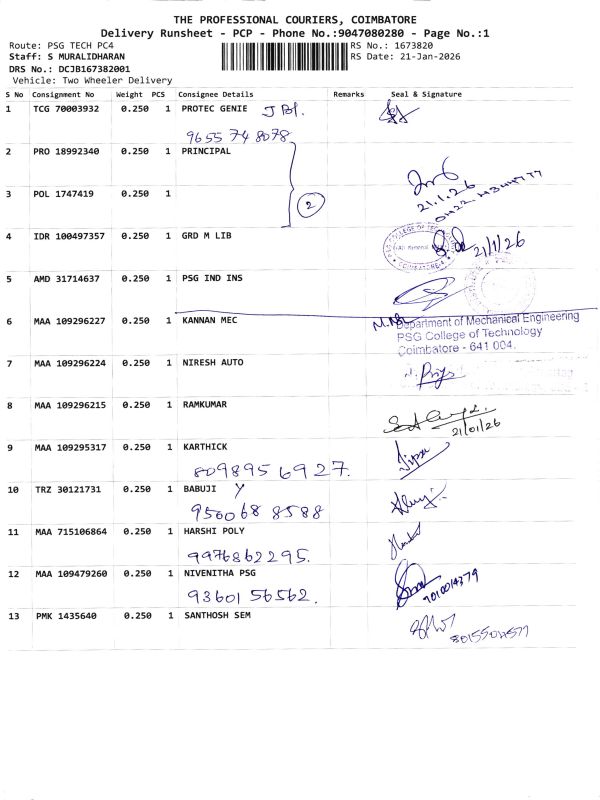 THE PROFESSIONAL COURIERS, COIMBATORE
Delivery Runsheet - PCP - Phone No.:9047080280 - Page No.:1
Route: PSG TECH PC4
Staff: S MURALIDHARAN
DRS No.: DCJB167382001
Vehicle: Two Wheeler Delivery
RS No.: 1673820
RS Date: 21-Jan-2026
S No Consignment No Weight PCS Consignee Details Remarks Seal & Signature
1 TCG 70003932 0.250 1 PROTEC GENIE
9655748078
2 PRO 18992340 0.250 1 PRINCIPAL
21.1.26
3 POL 1747419 0.250 1
2
4 IDR 100497357 0.250 1 GRD M LIB
21/1/26
5 AMD 31714637 0.250 1 PSG IND INS
6 MAA 109296227 0.250 1 KANNAN MEC
Department of Mechanical Engineering
PSG College of Technology
Coimbatore - 641 004.
7 MAA 109296224 0.250 1 NIRESH AUTO
8 MAA 109296215 0.250 1 RAMKUMAR
21/01/26
9 MAA 109295317 0.250 1 KARTHICK
8098956927.
10 TRZ 30121731 0.250 1 BABUJI Y
9500688588
11 MAA 715106864 0.250 1 HARSHI POLY
9976862295.
12 MAA 109479260 0.250 1 NIVENITHA PSG
9360156562.
13 PMK 1435640 0.250 1 SANTHOSH SEM